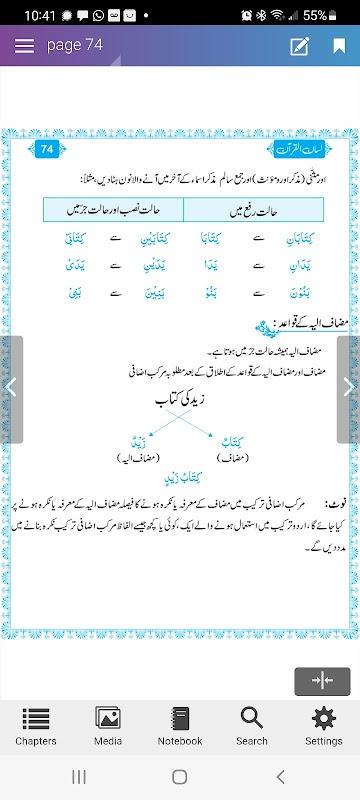 10:41 55%
page 74
74 لسان القرآن
اور مثنّٰی (مذکر اور مؤنث) اور جمع سالم مذکر اسماء کے آخر میں آنے والا نون ہٹا دیں، مثلاً:
حالت رفع میں حالت نصب اور حالت جر میں
كِتَابَانِ سے كِتَابَا كِتَابَيْنِ سے كِتَابَيْ
يَدَانِ سے يَدَا يَدَيْنِ سے يَدَيْ
بَنُوْنَ سے بَنُوْ بَنِيْنَ سے بَنِيْ
مضاف الیہ کے قواعد:
مضاف الیہ ہمیشہ حالت جر میں ہوتا ہے۔
مضاف اور مضاف الیہ کے قواعد کے اطلاق کے بعد مطلوبہ مرکب اضافی
زید کی کتاب
كِتَابٌ زَيْدٌ
(مضاف) (مضاف الیہ)
كِتَابُ زَيْدٍ
نوٹ: مرکب اضافی ترکیب میں مضاف کے معرفہ یا نکرہ ہونے کا فیصلہ مضاف الیہ کے معرفہ یا نکرہ ہونے پر
کیا جائے گا، اردو ترکیب میں استعمال ہونے والے ایک، کوئی یا کچھ جیسے الفاظ مرکب اضافی ترکیب نکرہ بنانے میں
مدد دیں گے۔
Chapters Media Notebook Search Settings